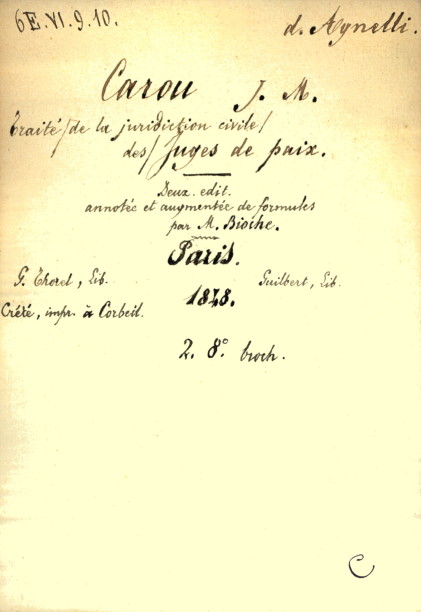 6E.VI.9.10.
d. Agnelli.
Carou J. M.
Traité / de la juridiction civile /
des / Juges de paix.
Deux. edit.
annotée et augmentée de formules
par M. Bioche.
Paris.
G. Thorel, Lib. Guilbert, Lib.
1848.
Crété, impr. à Corbeil.
2. 8° broch.
C